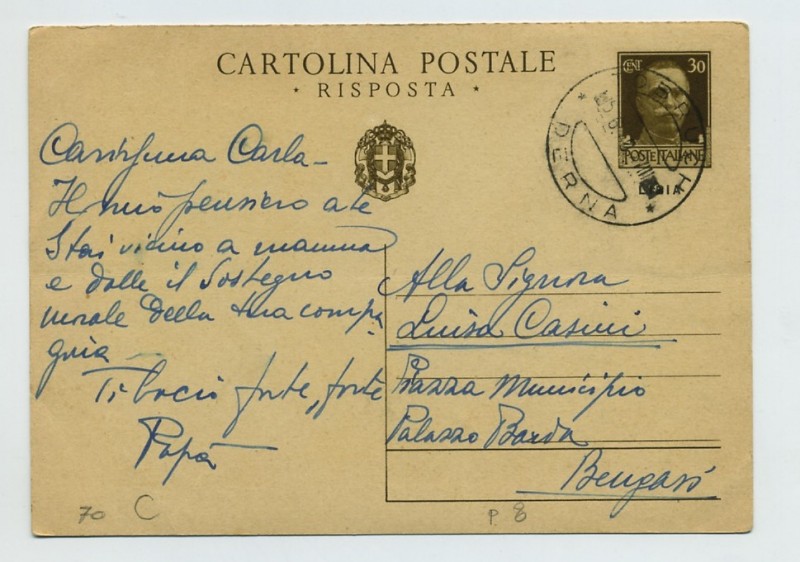 CARTOLINA POSTALE
* RISPOSTA *
CENT 30
POSTE ITALIANE
LIBIA
DERNA
Carissima Carla -
Il mio pensiero a te
Stai vicino a mamma
e dalle il sostegno
morale della tua compa
gnia
Ti bacio forte, forte
Papà
Alla Signora
Luisa Casini
Piazza Municipio
Palazzo Barda
Bengasi
70 C
P 8